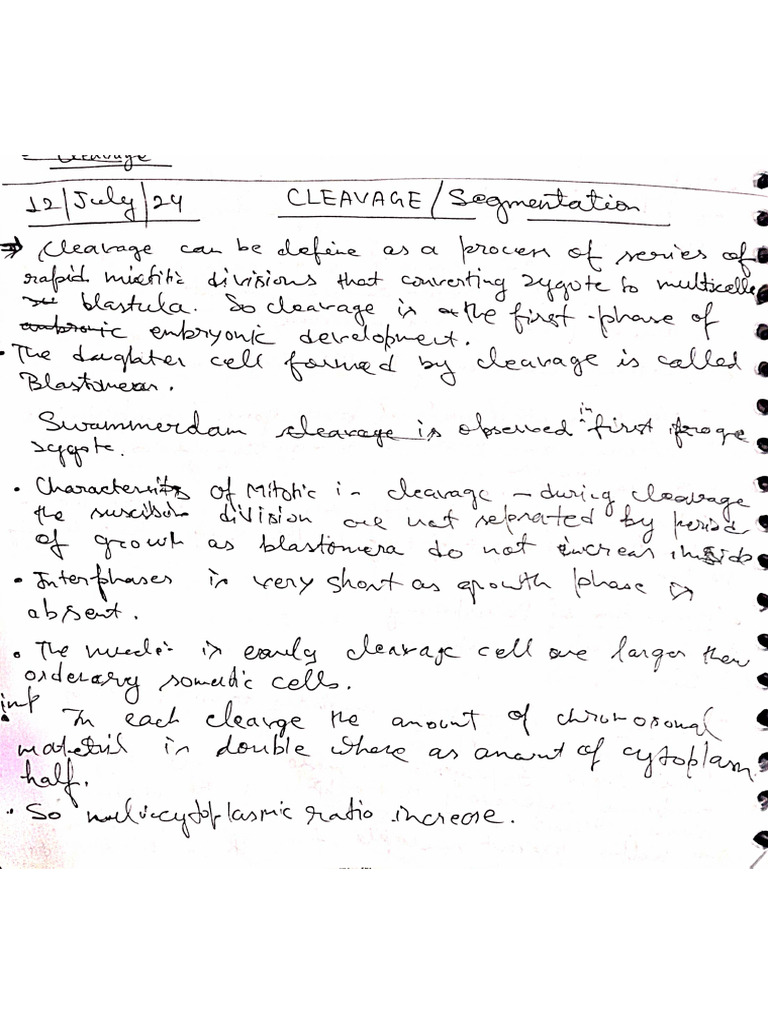 = Cleavage
12/July/24 CLEAVAGE/Segmentation
⇒ Cleavage can be define as a process of series of
rapid miotitic divisions that converting zygote to multicelle
blastula. So cleavage is the first phase of
embryonic development.
• The daughter cell formed by cleavage is called
Blastomear.
Swammerdam cleavage is observed in first froge
zygote.
• Characterists of Mitotic in cleavage – during cleavage
the division are not seprated by period
of growth as blastomera do not increas inside
• Interphases is very short as growth phase is
absent.
• The nuclei is early cleavage cell are larger then
orderary somatic cells.
imp
• In each cleavge the amount of chromosonal
matetril is double where as amount of cytoplasm
half.
• So ratio increase.